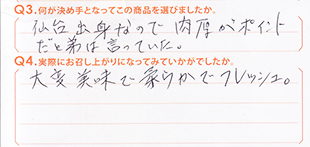 Q3.何が決め手となってこの商品を選びましたか。
仙台出身なので肉厚がポイント
だと弟は言っていた。
Q4.実際にお召し上がりになってみていかがでしたか。
大変美味で柔らかでフレッシュ。